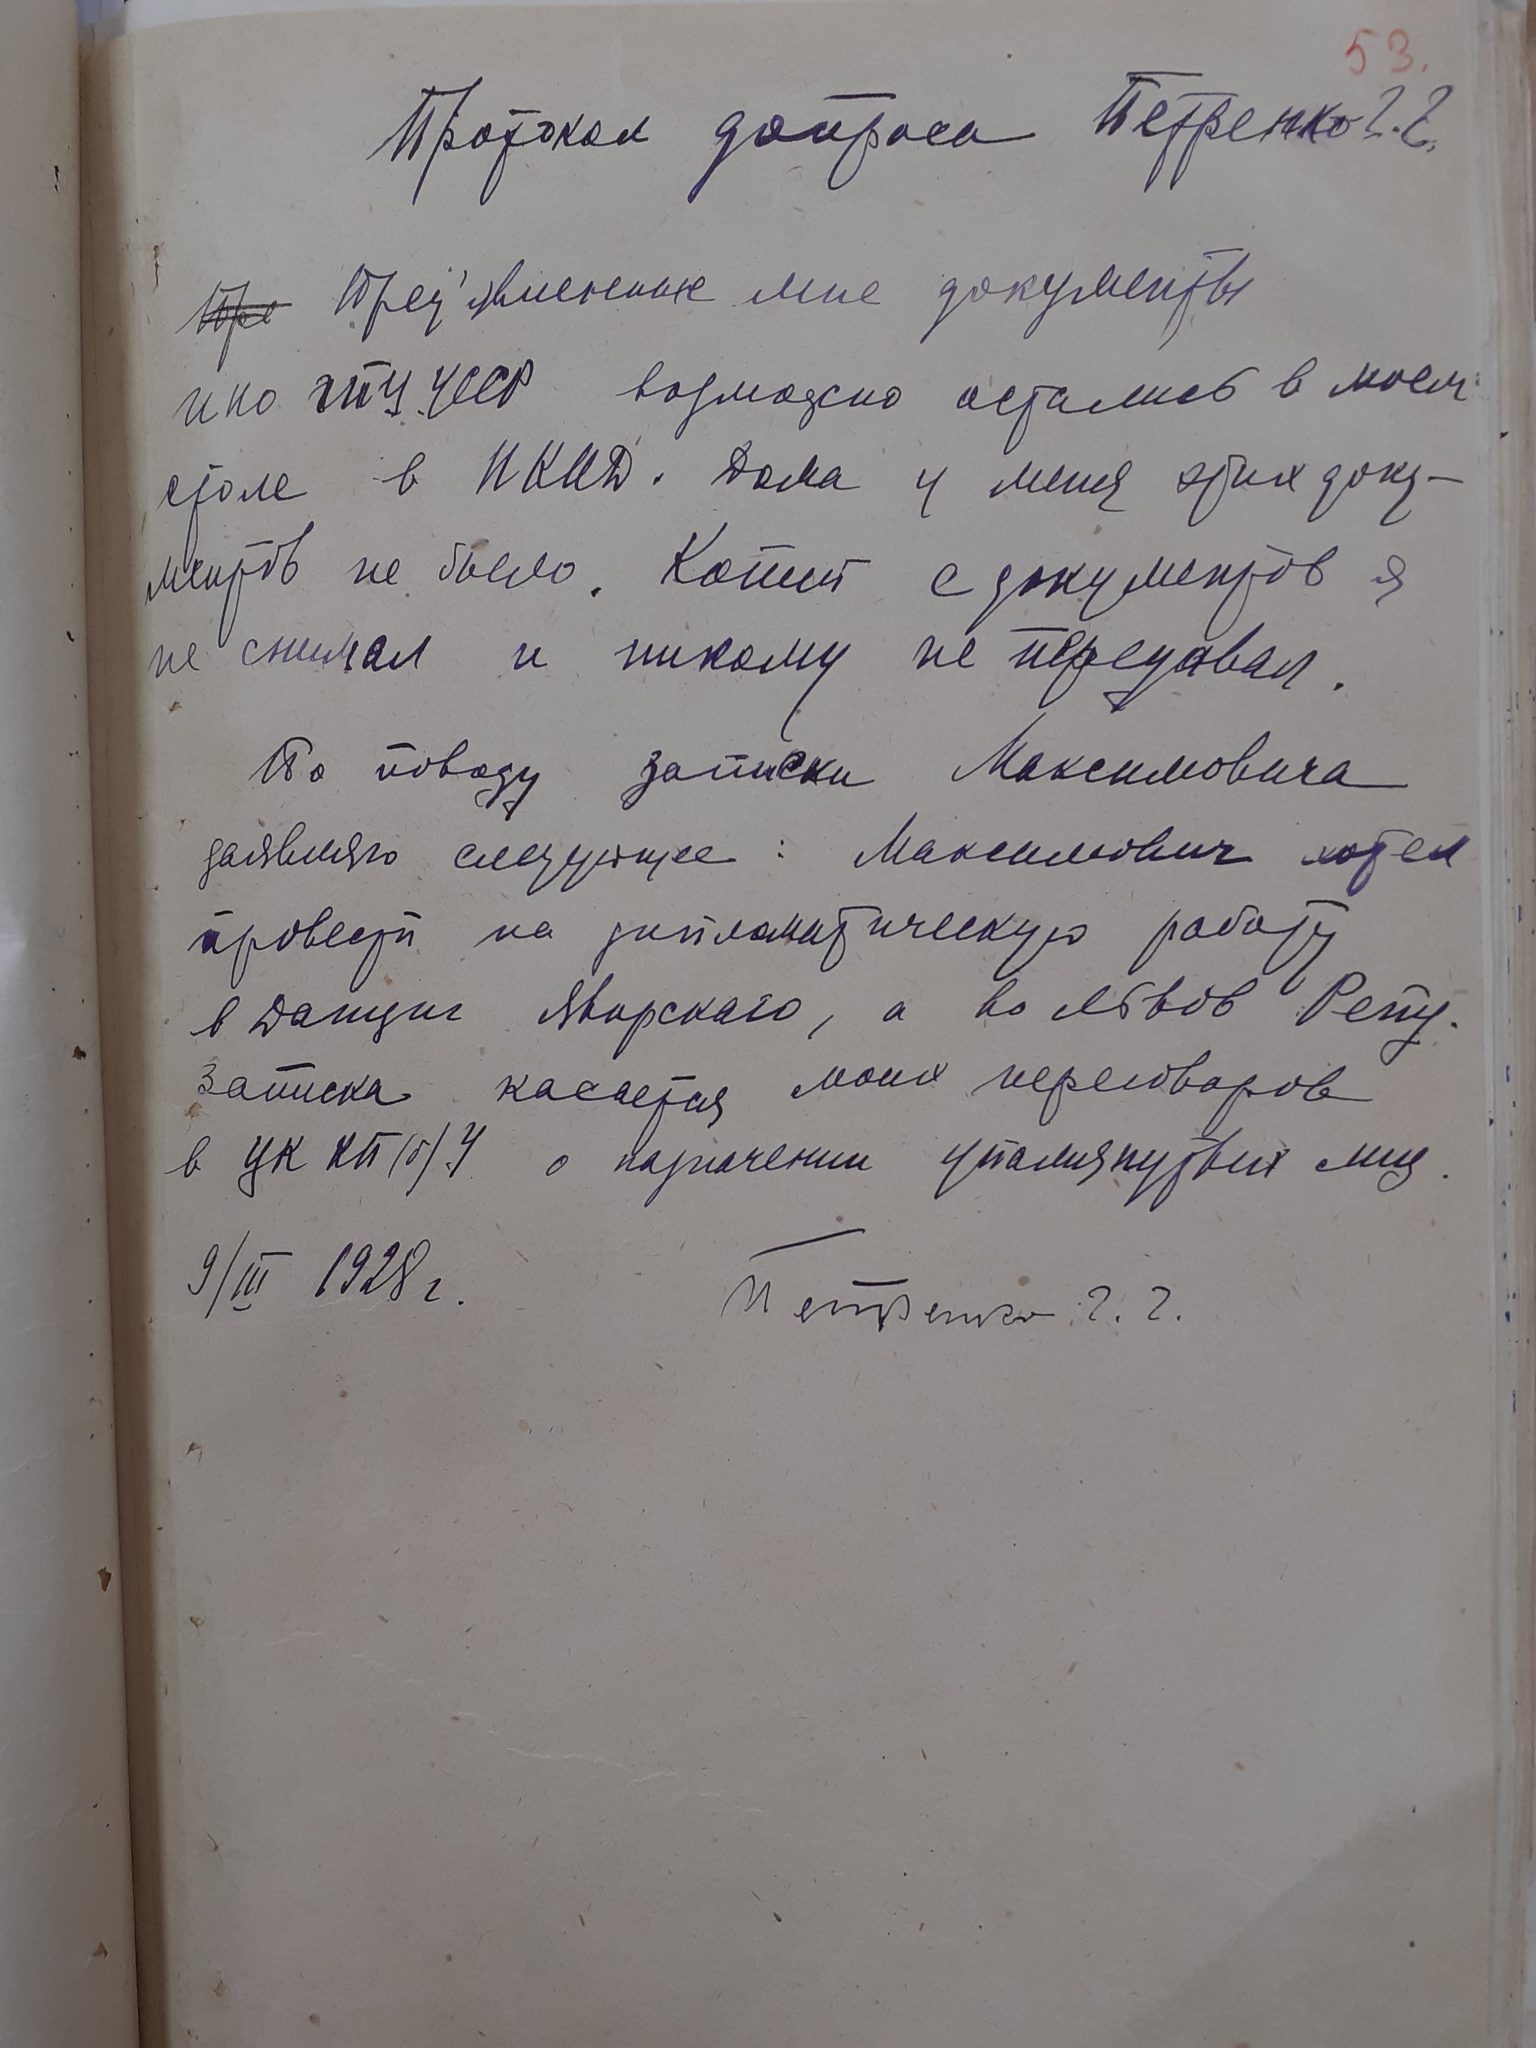 53.
Протокол допроса Петренко Г. Г.
Пре Пред'явленные мне документы
ИНО ГПУ УССР возможно остались в моем
столе в НКИД. Дома у меня этих доку-
ментов не было. Копий с документов я
не снимал и никому не передавал.
По поводу записки Максимовича
заявляю следующее: Максимович хотел
провести на дипломатическую работу
в Данциг Яворского, а во Львов Репу.
Записка касается моих переговоров
в ЦК КП(б)У о назначении упомянутых лиц.
9/III 1928 г.
Петренко Г. Г.